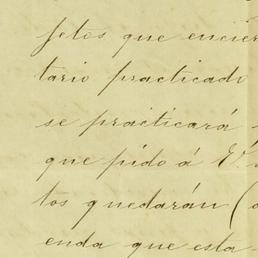 fetos que encier
tario practicado
se practicará
que pido á V.
tos quedarán (
enda que esta